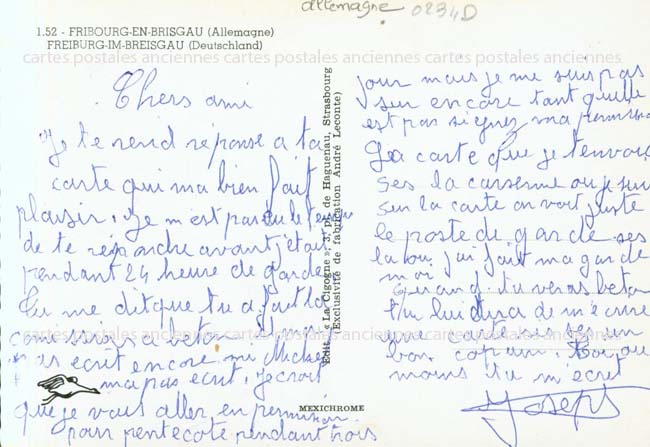 allemagne 0234D
1.52 - FRIBOURG-EN-BRISGAU (Allemagne)
FREIBURG-IM-BREISGAU (Deutschland)
cartes postales anciennes cartes postales anciennes cartes postales anciennes
Chers ami
Je te rend réponse a ta
carte qui ma bien fait
plaisir. Je m'est pas eu le temp
de te répondre avant j'étais
pendant 24 heure de garde
Tu me dit que tu a fait la
commission a
pas écrit encore ni Michel
ma pas ecrit, Je croit
que je vais aller en permission
pour pentecote pendant trois
Edit. « La Cigogne », 3, pl. de Haguenau, Strasbourg
(Exclusivité de fabrication André Leconte)
MEXICHROME
jour mais je me suis pas
sur encore tant qu'elle
est pas signez ma permission
La carte que je t'envoie
ses la caserne ou je suis
sur la carte on voit juste
le poste de garde ses
la ou j'ai fait ma garde
moi
Quand tu veras
tu lui dira de m'écrire
une carte
bon copain. Toi au
moins tu m'ecrit
Joseph
cartes postales anciennes cartes postales anciennes cartes postales anciennes